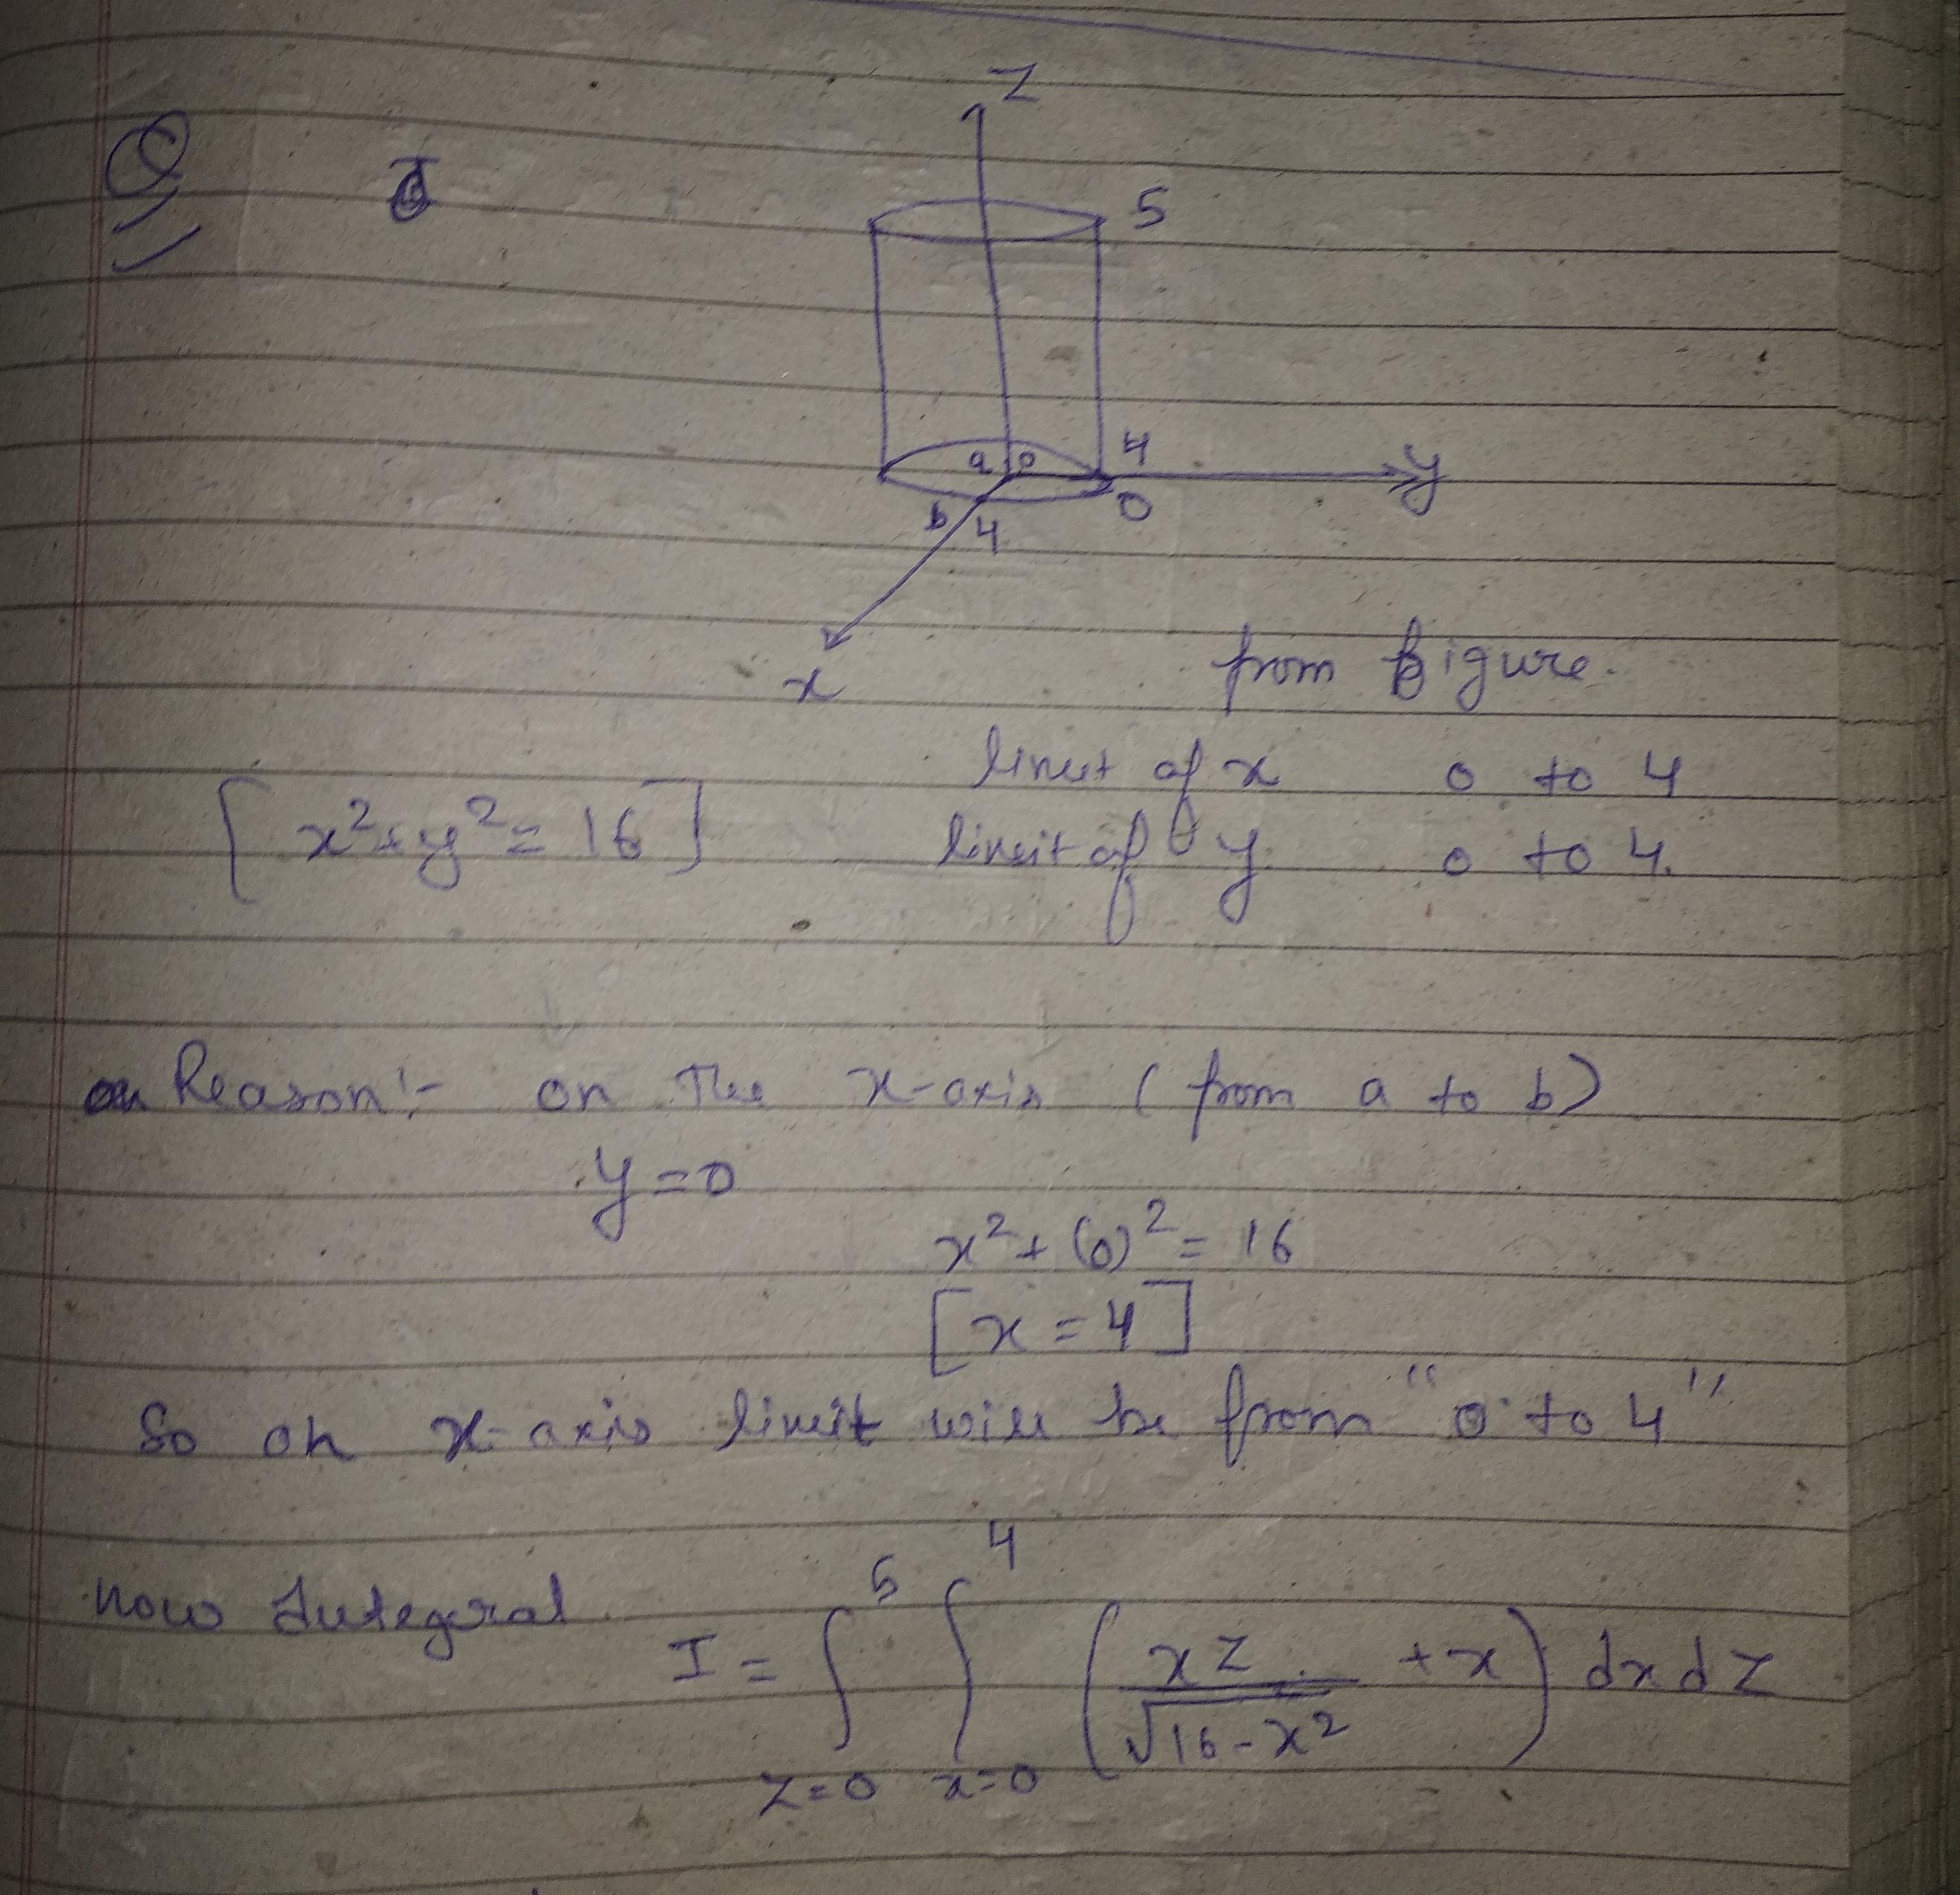 Q
Z
5
4
a 0
y
0
b 4
x
from figure.
limit of x 0 to 4
[x²+y²= 16] limit of y 0 to 4.
Reason:- on The x-axis (from a to b)
y=0
x²+(0)²= 16
[x=4]
So on x-axis limit will be from "0 to 4"
now Integral I = ∫_{z=0}^{5} ∫_{x=0}^{4} (xz/√16-x² + x) dx dz